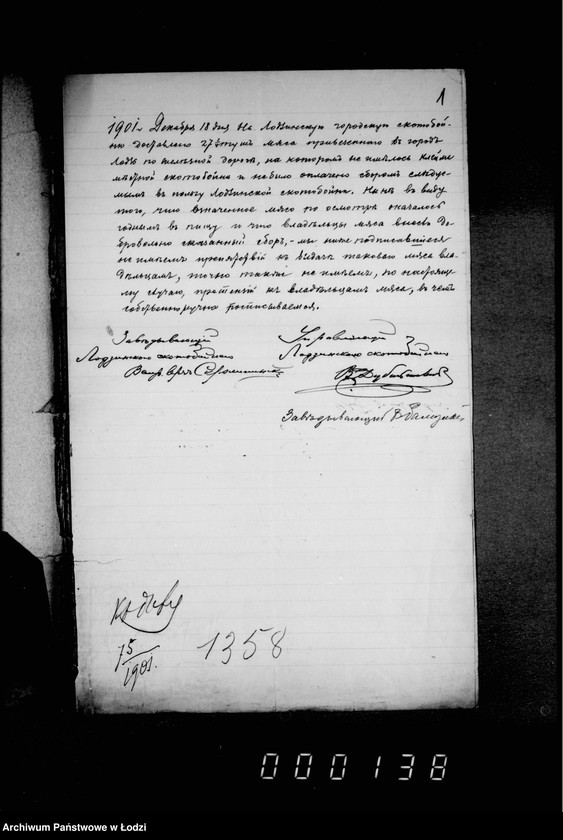 1
1901 г. Декабря 18 дня на Лодзинскую городскую скотобой-
ню доставлено 27 штук мяса привезеннаго в город
Лодзь по желѣзной дорогѣ, на котором не имѣлось клейма
мѣстной скотобойни и небыло оплачено сбором слѣдуе-
мым в пользу Лодзинской скотобойни. Нынѣ в виду
того, что означенное мясо по осмотрѣ оказалось
годным в пищу и что владѣльцы мяса внесли до-
бровольно сказанный сбор, - мы ниже подписавшиеся
не имѣем препятствій к выдачѣ таковаго мяса вла-
дѣльцам, точно также не имѣем, по настояще-
му случаю, претензій к владѣльцам мяса, в чем
собственноручно росписываемся.
Завѣдывающій
Лодзинскою скотобойнею
Ветер. врач
Управляющій
Лодзинскою скотобойнею
Завѣдывающій
К дѣлу
75/1901.
1358
000138
Archiwum Państwowe w Łodzi